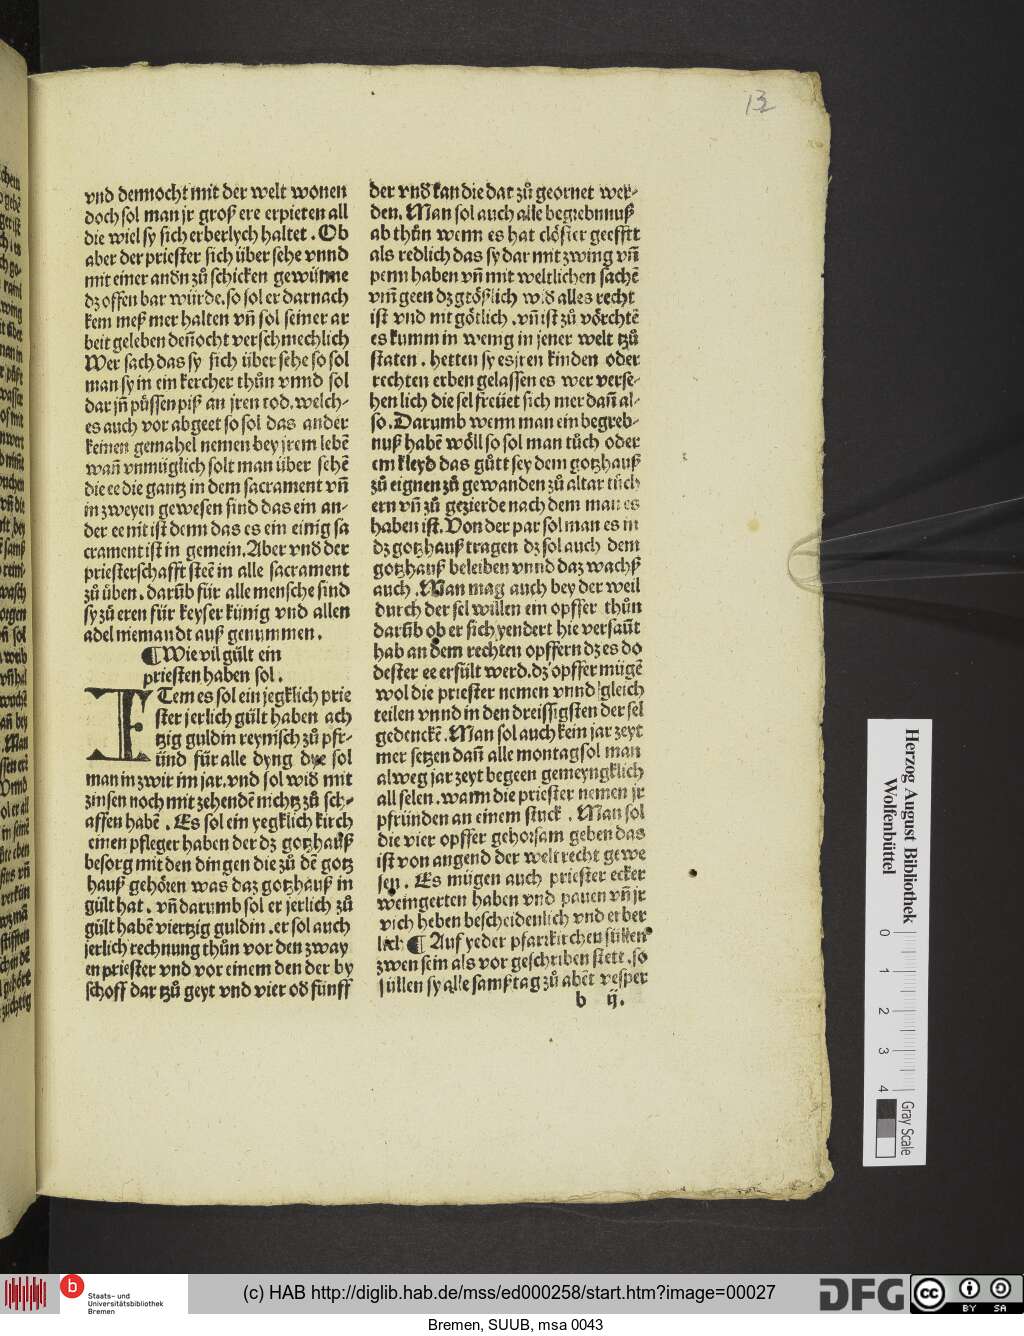 13
vnd dennocht mit der welt wonen
doch sol man jr groß ere erpieten all
die wiel sy sich erberlych haltet. Ob
aber der priester sich über sehe vnnd
mit einer andn zů schicken gewünne
dz offen bar würde. so sol er darnach
kem meß mer halten vn̄ sol seiner ar
beit geleben den̄ocht verschmechlich
Wer sach das sy sich über sehe so sol
man sy in ein kercher thůn vnnd sol
dar jn̄ püssen piß an jren tod. welch-
es auch vor abgeet so sol das ander
keinen gemahel nemen bey jrem lebē
wan̄ vnmüglich solt man über sehē
die ee die gantz in dem sacrament vn̄
in zweyen gewesen sind das ein an-
der ee nit ist denn das es ein einig sa
crament ist in gemein. Aber vnd der
priesterschafft steē in alle sacrament
zů üben. darūb für alle mensche sind
sy zů eren für keyser künig vnd allen
adel niemandt auß genummen.
¶ Wie vil gült ein
priesten haben sol.
ITem es sol ein jegklich prie
ster jerlich gült haben ach
tzig guldin reynisch zů pfr-
ünd für alle dyng dye sol
man in zwir im jar. vnd sol wid mit
zinsen noch mit zehendē nichtz zů sch-
affen habē. Es sol ein yegklich kirch
einen pfleger haben der dz gotzhauß
besorg mit den dingen die zů dē gotz
hauß gehören was daz gotzhauß in
gült hat. vn̄ darumb sol er jerlich zů
gült habē viertzig guldin. er sol auch
jerlich rechnung thůn vor den zway
en priester vnd vor einem den der by
schoff dar tzů geyt vnd vier od fünff
der vnd kan die dar zů geornet wer-
den. Man sol auch alle begrebnnuß
ab thůn wenn es hat clöster geefftt
als redlich das sy dar mit zwing vn̄
penn haben vn̄ mit weltlichen sachē
vm̄ geen dz größlich wid alles recht
ist vnd nit götlich. vn̄ ist zů vörchtē
es kumm in wenig in jener welt tzů
staten. hetten sy es jren kinden oder
rechten erben gelassen es wer verse-
hen lich die sel freüet sich mer dan̄ al-
so. Darumb wenn man ein begreb-
nuß habē wöll so sol man tůch oder
ein kleyd das gůtt sey dem gotzhauß
zů eignen zů gewanden zů altar tůch
ern vn̄ zů gezierde nach dem man es
haben ist. Von der par sol man es in
dz gotzhauß tragen dz sol auch dem
gotzhauß beleiben vnnd daz wachß
auch. Man mag auch bey der weil
durch der sel willen ein opffer thůn
darūb ob er sich yendert hie versaūt
hab an dem rechten opffern dz es do
dester ee erfült werd. dz opffer mügē
wol die priester nemen vnnd gleich
teilen vnnd in den dreissigsten der sel
gedenckē. Man sol auch kein jar zeyt
mer setzen dan̄ alle montag sol man
alweg jar zeyt begeen gemeyngklich
all selen. wann die priester nemen jr
pfründen an einem stuck. Man sol
die vier opffer gehorsam geben das
ist von angend der welt recht gewe
sen. Es mügen auch priester ecker
weingerten haben vnd pauen vn̄ jr
vich heben bescheidenlich vnd erber
lich ¶ Auf yeder pfarrkirchen süllen
zwen sein als vor geschriben stett. so
süllen sy alle samßtag zů abēt vesper
b ij.
Herzog August Bibliothek
Wolfenbüttel
0 1 2 3 4
Gray Scale
b
Staats- und
Universitätsbibliothek
Bremen
(c) HAB http://diglib.hab.de/mss/ed000258/start.htm?image=00027
DFG
cc
BY SA
Bremen, SUUB, msa 0043